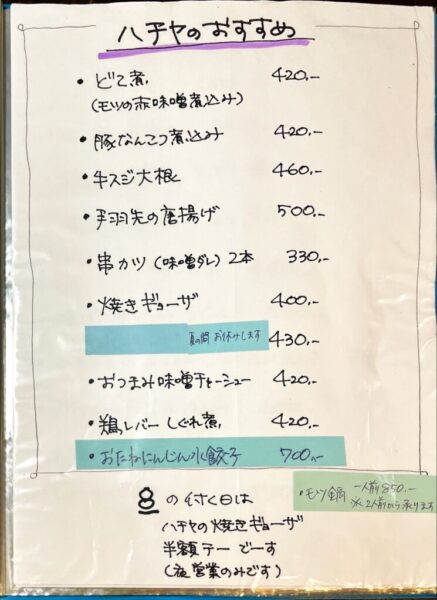 ハチヤのおすすめ
・どて煮 420.-
(モツの赤味噌煮込み)
・豚なんこつ煮込み 420.-
・牛スジ大根 460.-
・手羽先の唐揚げ 500.-
・串カツ(味噌ダレ)2本 330.-
・焼きギョーザ 400.-
夏の間 お休みします 430.-
・おつまみ味噌チャーシュー 420.-
・鶏レバーしぐれ煮 420.-
・おたねにんじん水餃子 700.-
・モツ鍋 一人前850.-
※2人前から承ります
8の付く日は
ハチヤの焼きギョーザ
半額デーでーす
(夜営業のみです)